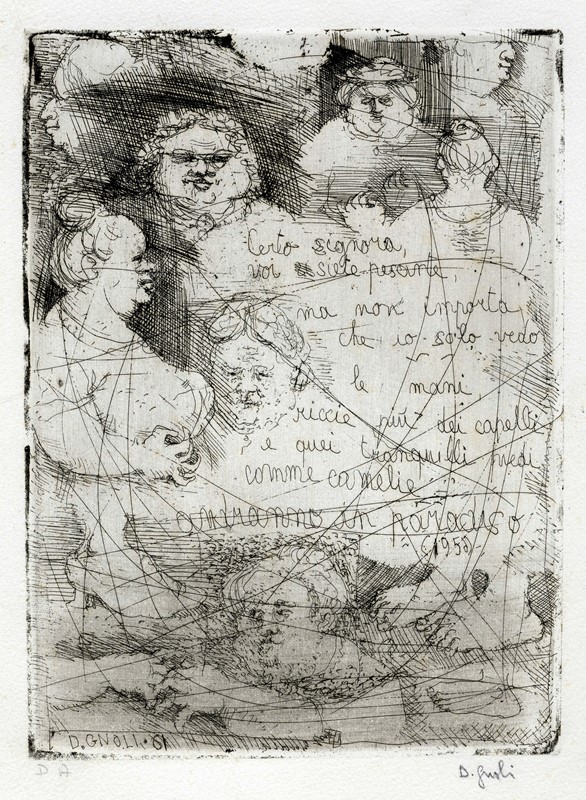 Certo signora,
voi siete pesante,
ma non importa
che io solo vedo
le mani
riccie più dei capelli
e quei tranquilli piedi
comme camelie
andranno in paradiso
(1958)
D. GNOLI. 61
D. Gnoli